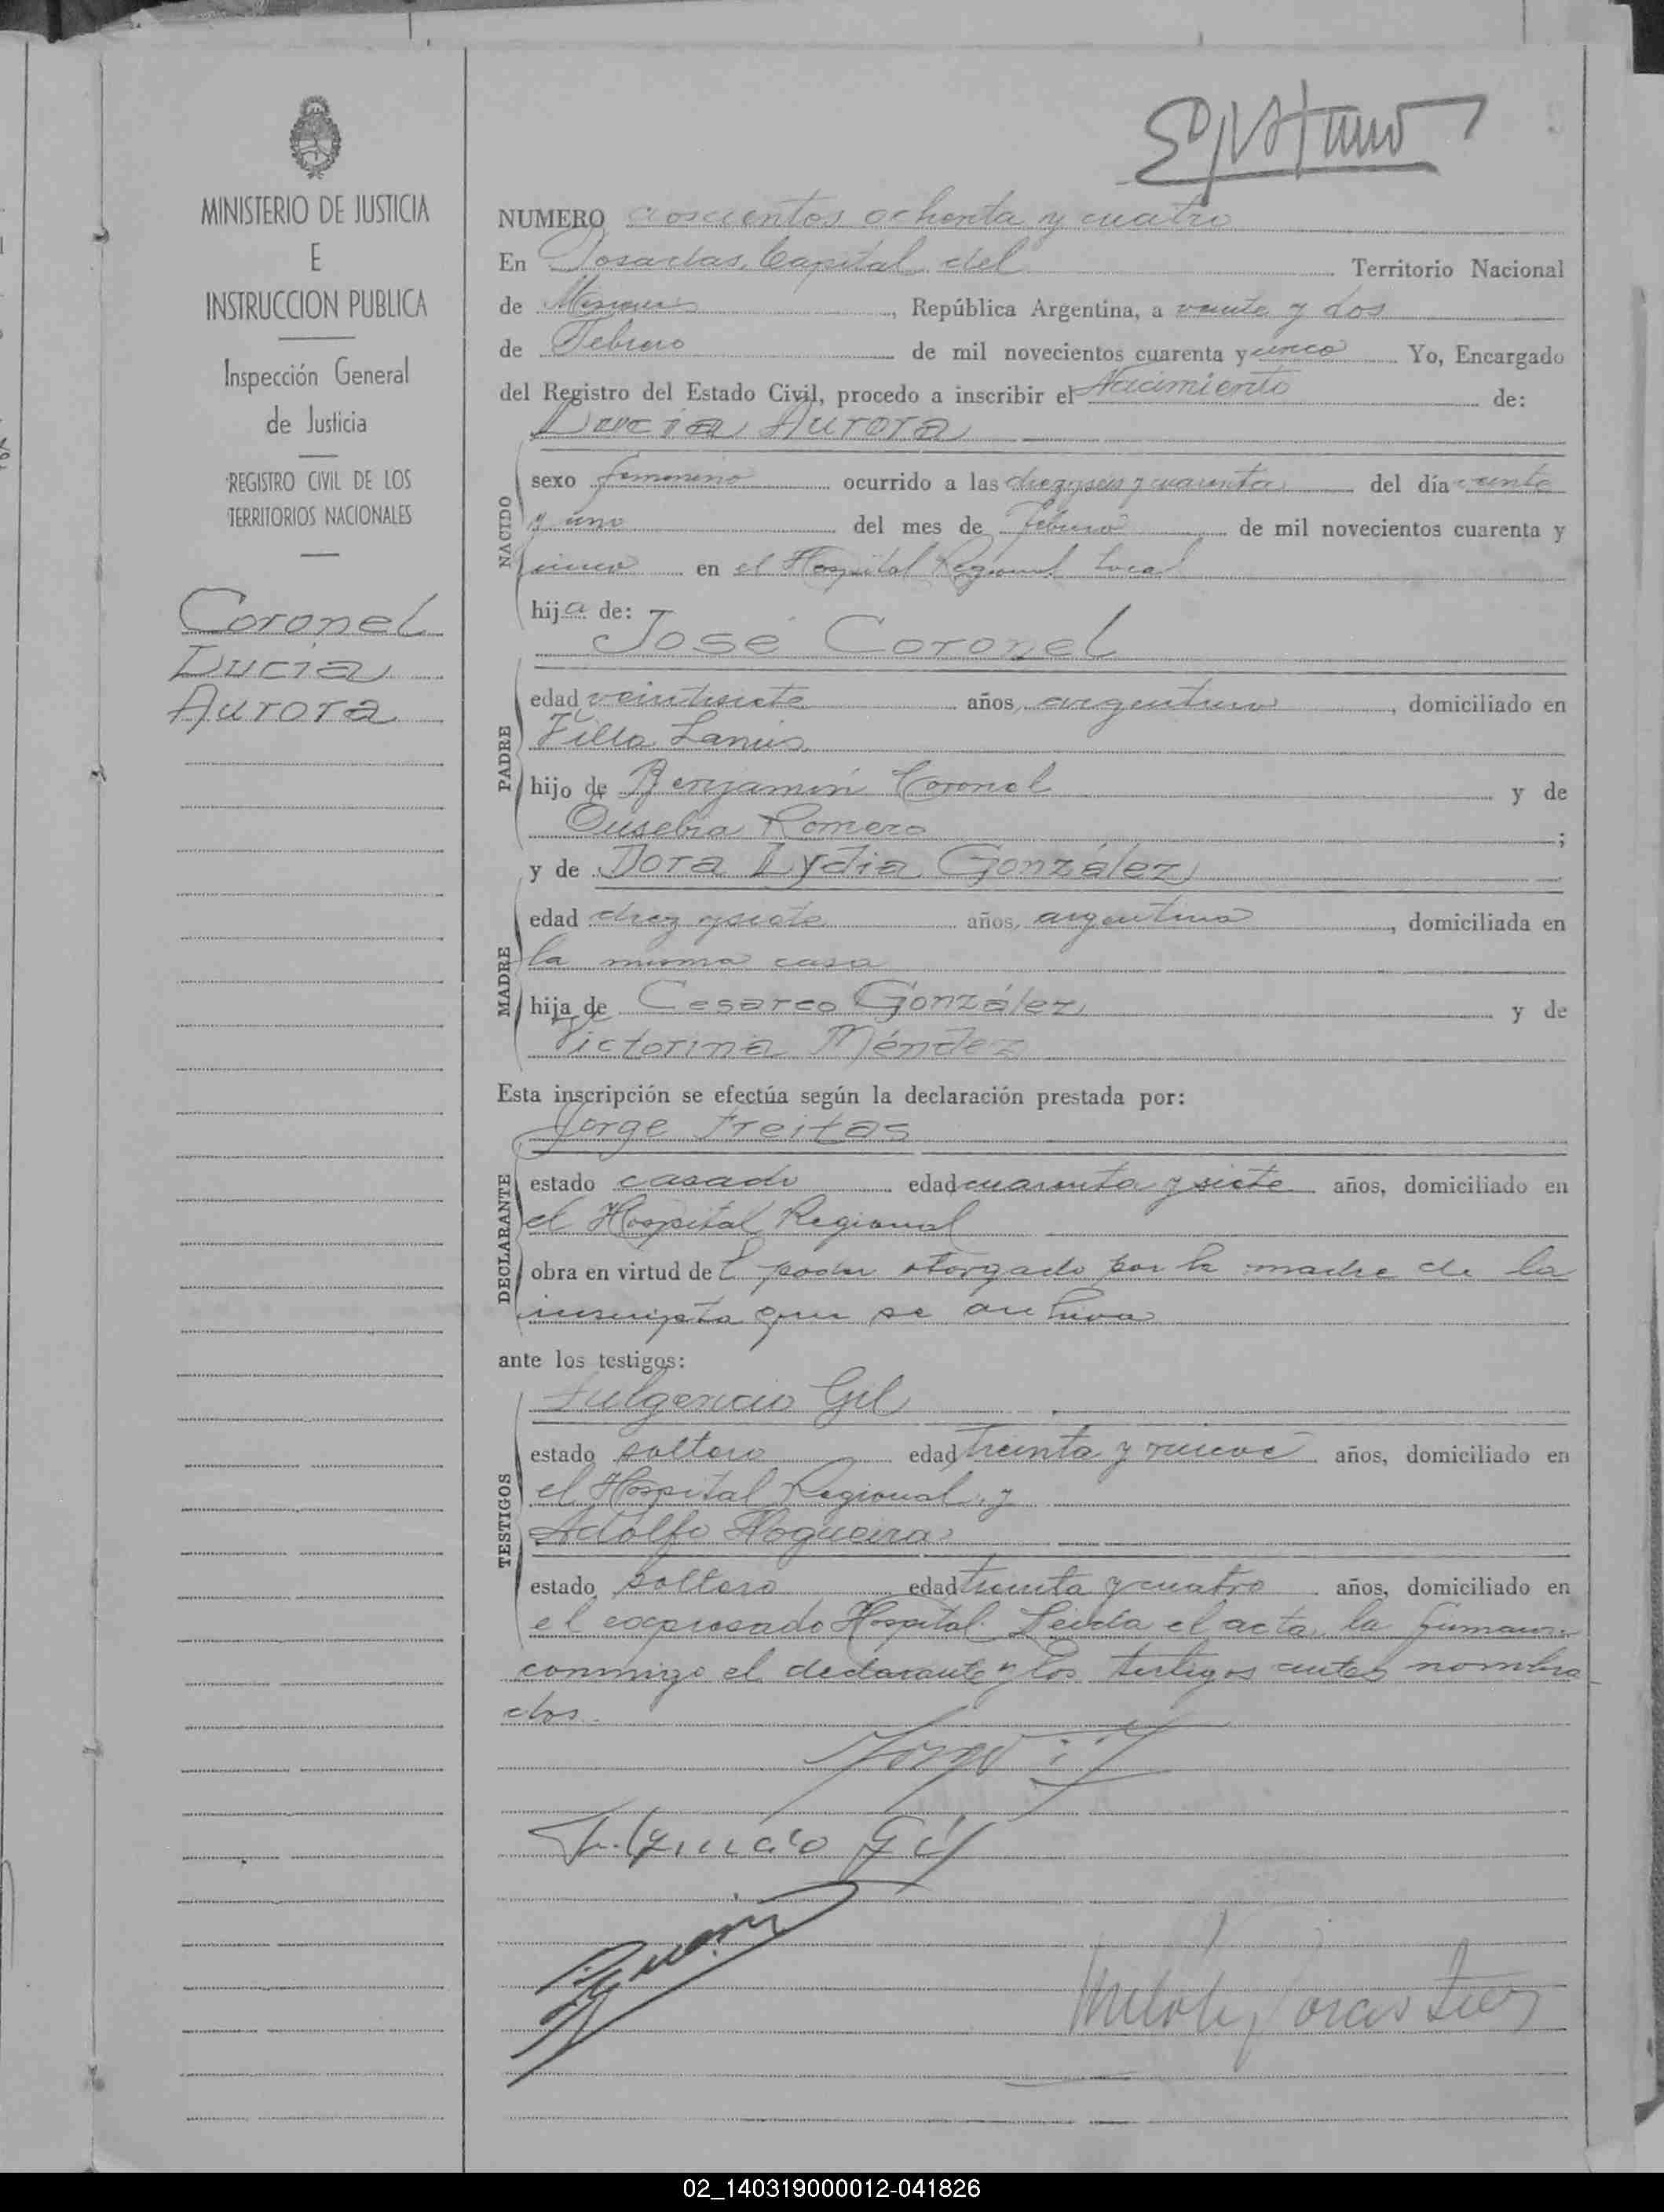 MINISTERIO DE JUSTICIA
E
INSTRUCCION PUBLICA
Inspección General
de Justicia
REGISTRO CIVIL DE LOS
TERRITORIOS NACIONALES
Coronel
Lucía
Aurora
NUMERO doscientos ochenta y cuatro
En Posadas, Capital del Territorio Nacional
de Misiones, República Argentina, a veinte y dos
de Febrero de mil novecientos cuarenta y cinco Yo, Encargado
del Registro del Estado Civil, procedo a inscribir el Nacimiento de:
Lucía Aurora
NACIDO
sexo femenino ocurrido a las diez y seis y cuarenta del día veinte
y uno del mes de Febrero de mil novecientos cuarenta y
cinco en el Hospital Regional local
hija de:
José Coronel
PADRE
edad veintisiete años, argentino, domiciliado en
Villa Lanús
hijo de Benjamín Coronel y de
Eusebia Romero;
y de Dora Lydia González
MADRE
edad diez y siete años, argentina, domiciliada en
la misma casa
hija de Cesareo González y de
Victorina Méndez
Esta inscripción se efectúa según la declaración prestada por:
Jorge Freitas
DECLARANTE
estado casado edad cuarenta y siete años, domiciliado en
el Hospital Regional
obra en virtud de l poder otorgado por la madre de la
inscripta que se archiva
ante los testigos:
TESTIGOS
Fulgencio Gil
estado soltero edad treinta y nueve años, domiciliado en
el Hospital Regional, y
Adolfo Nogueira
estado soltero edad treinta y cuatro años, domiciliado en
el expresado Hospital. Leída el acta, la firman
conmigo el declarante y los testigos antes nombra
dos.
Fulgencio Gil
02_140319000012-041826